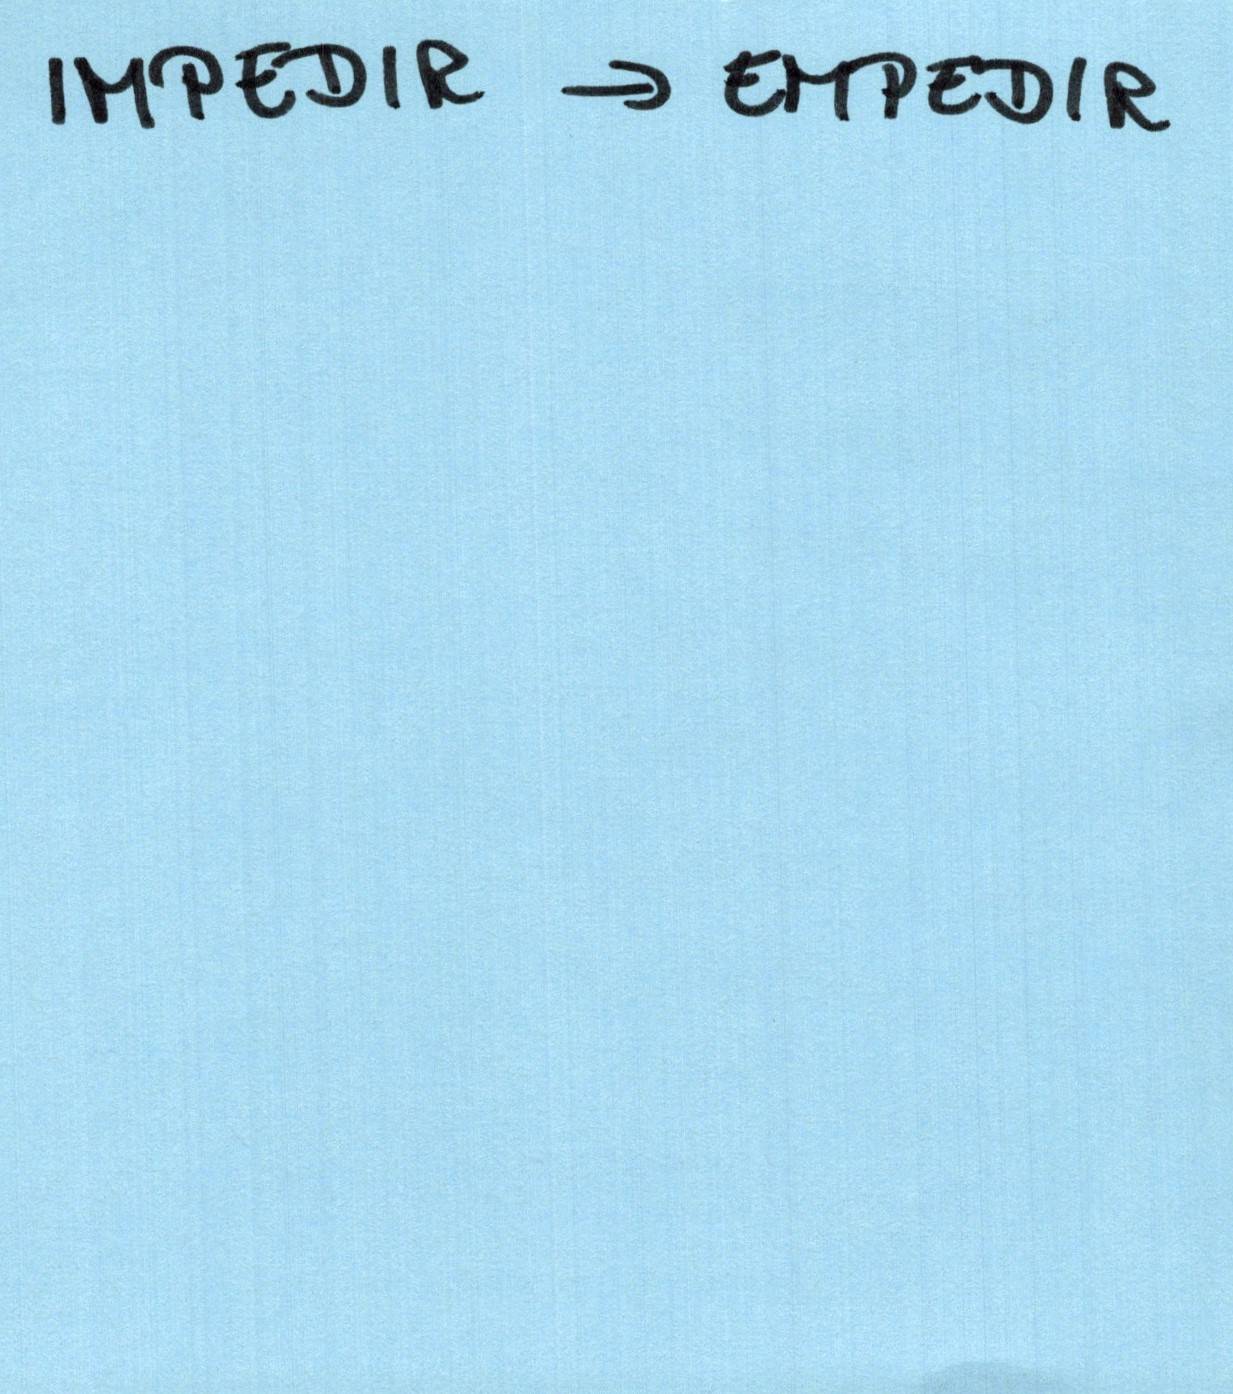 IMPEDIR → EMPEDIR